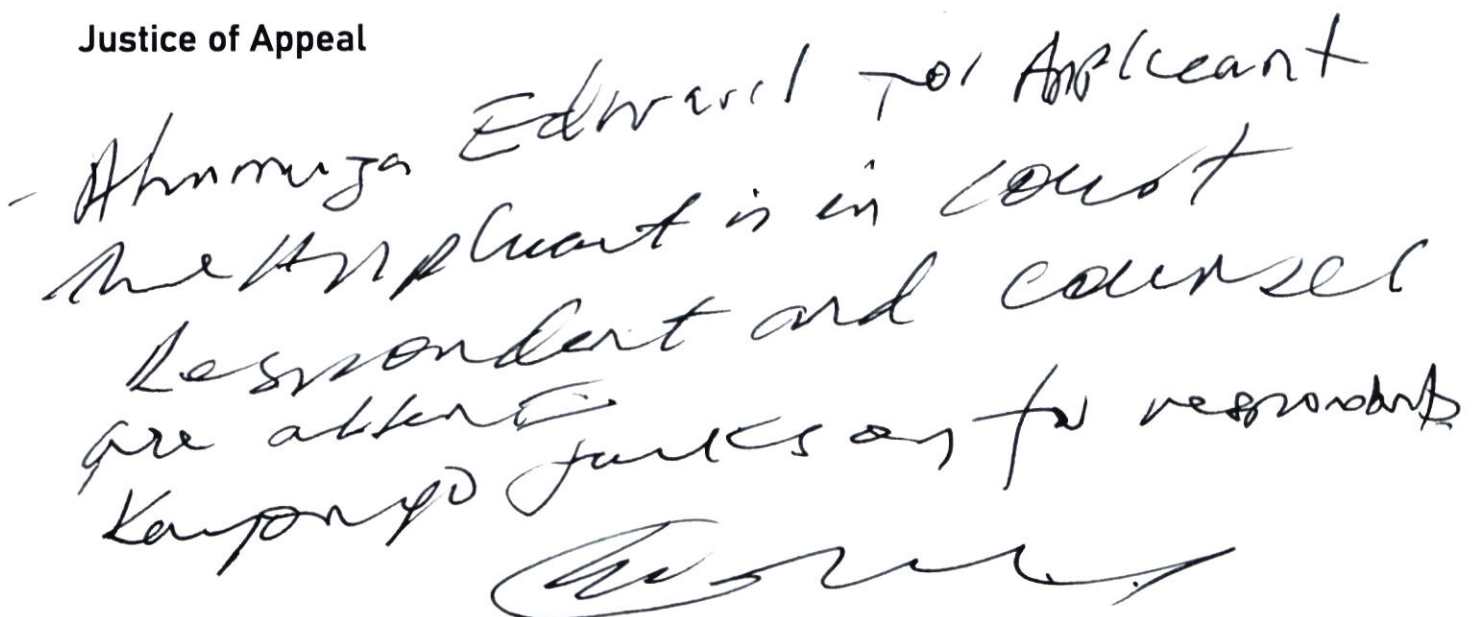 Justice of Appeal
- Ahumuza Edward for Applicant
The Applicant is in court
Respondent and counsel
are absent
Kayongo Jackson for respondents